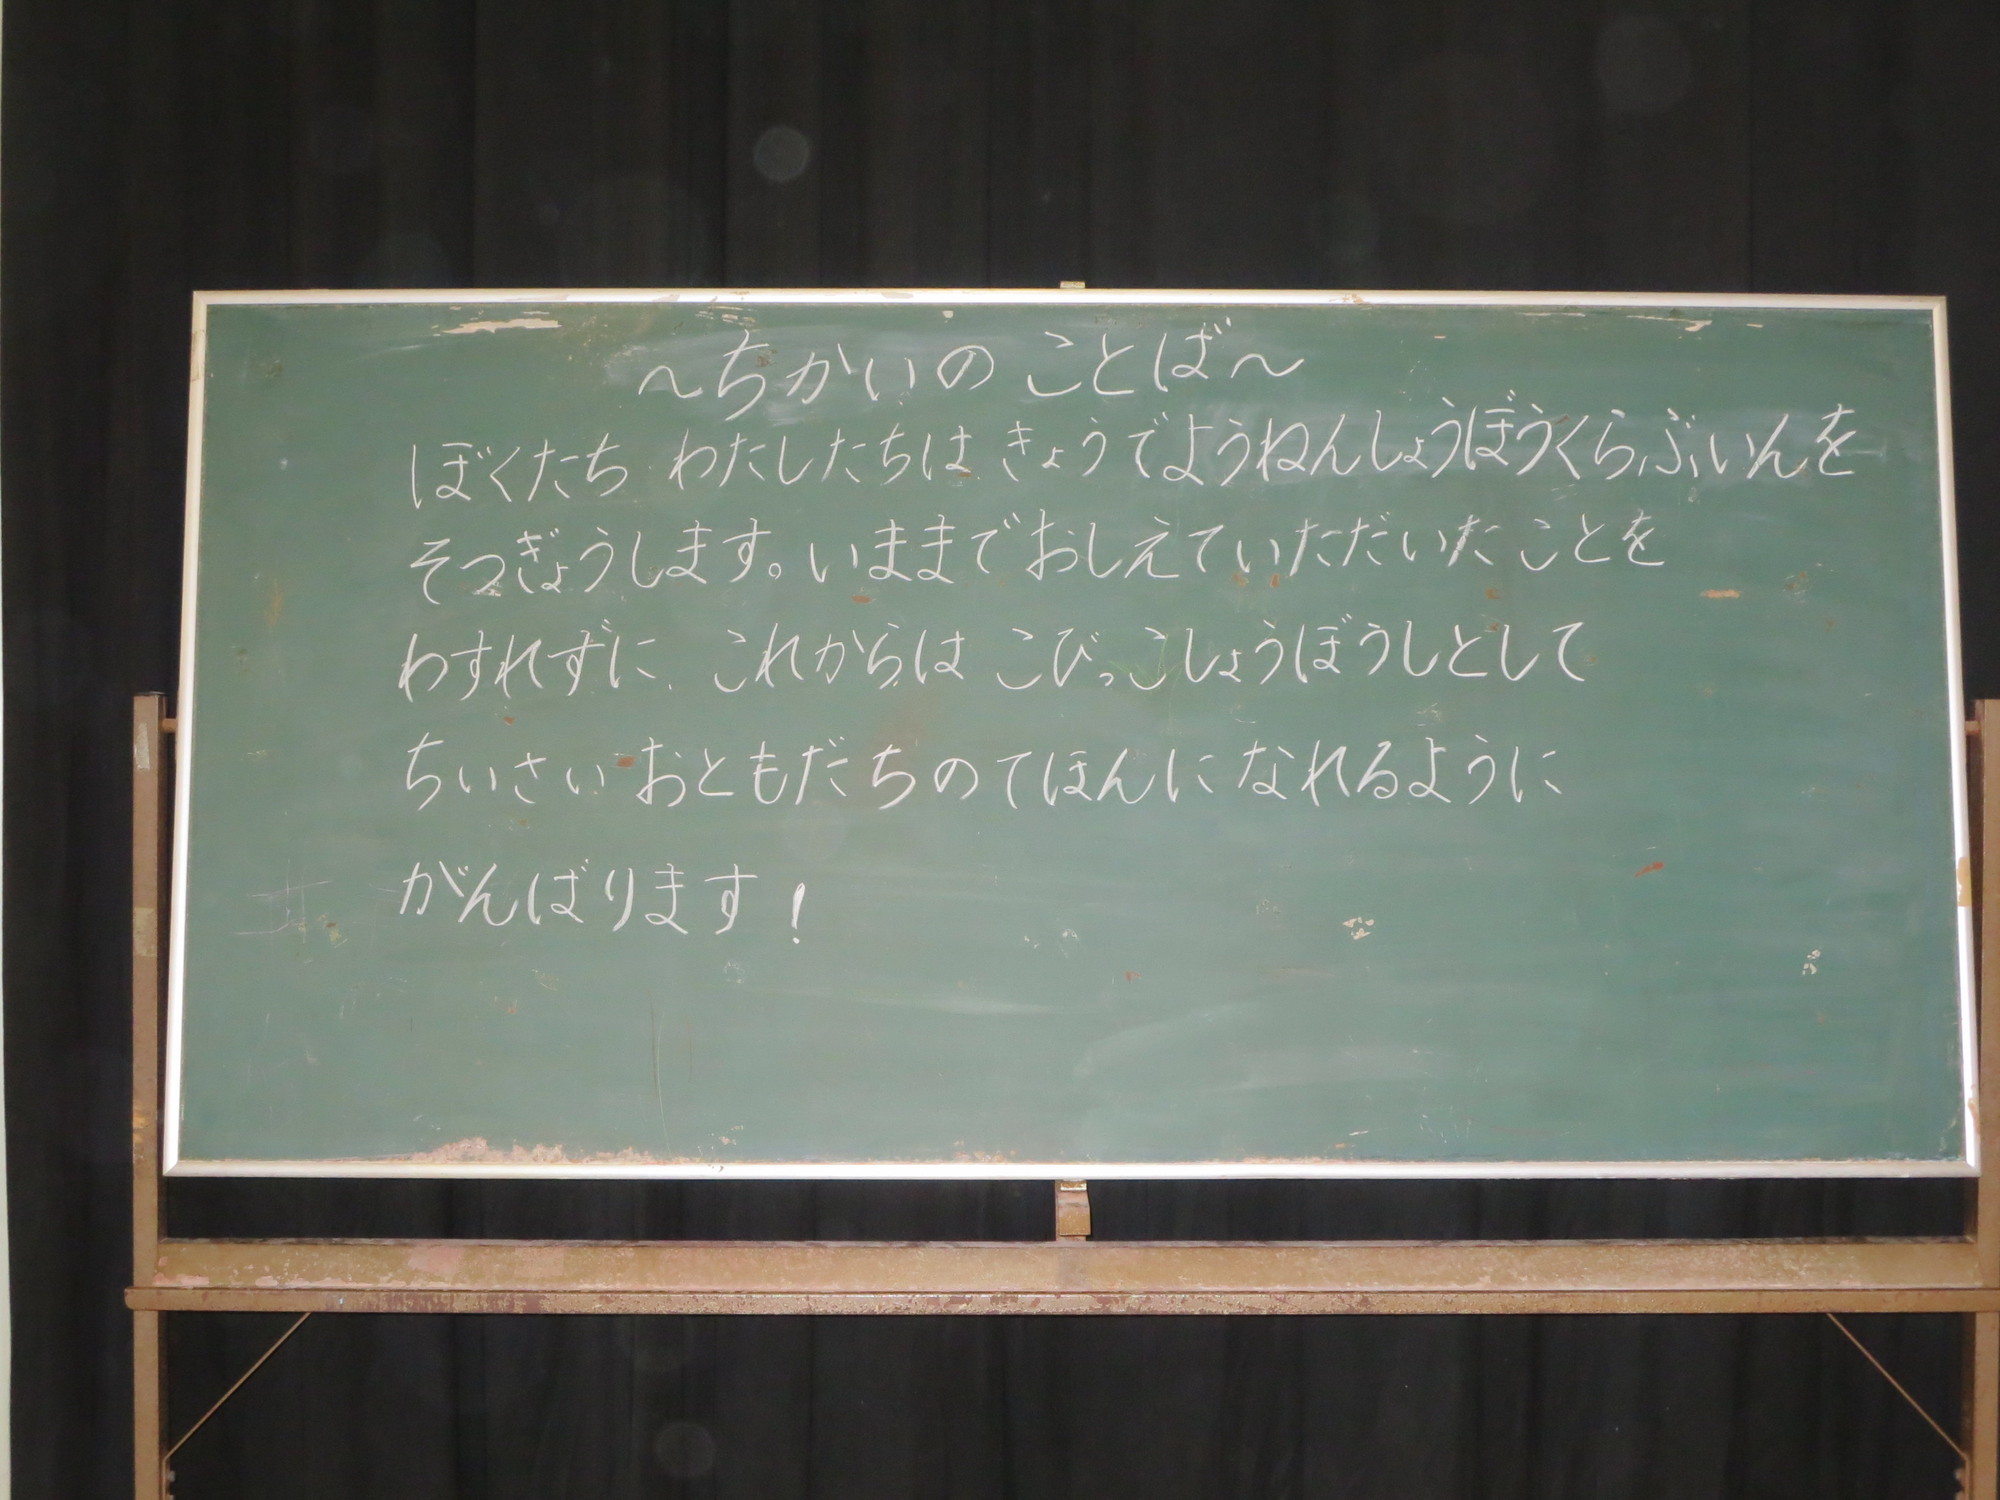 ～ちかいの ことば～
ぼくたち わたしたちは きょうでようねんしょうぼうくらぶいんを
そつぎょうします。いままでおしえていただいた ことを
わすれずに、これからは こびっこしょうぼうしとして
ちいさい おともだちのてほんに なれるように
がんばります！